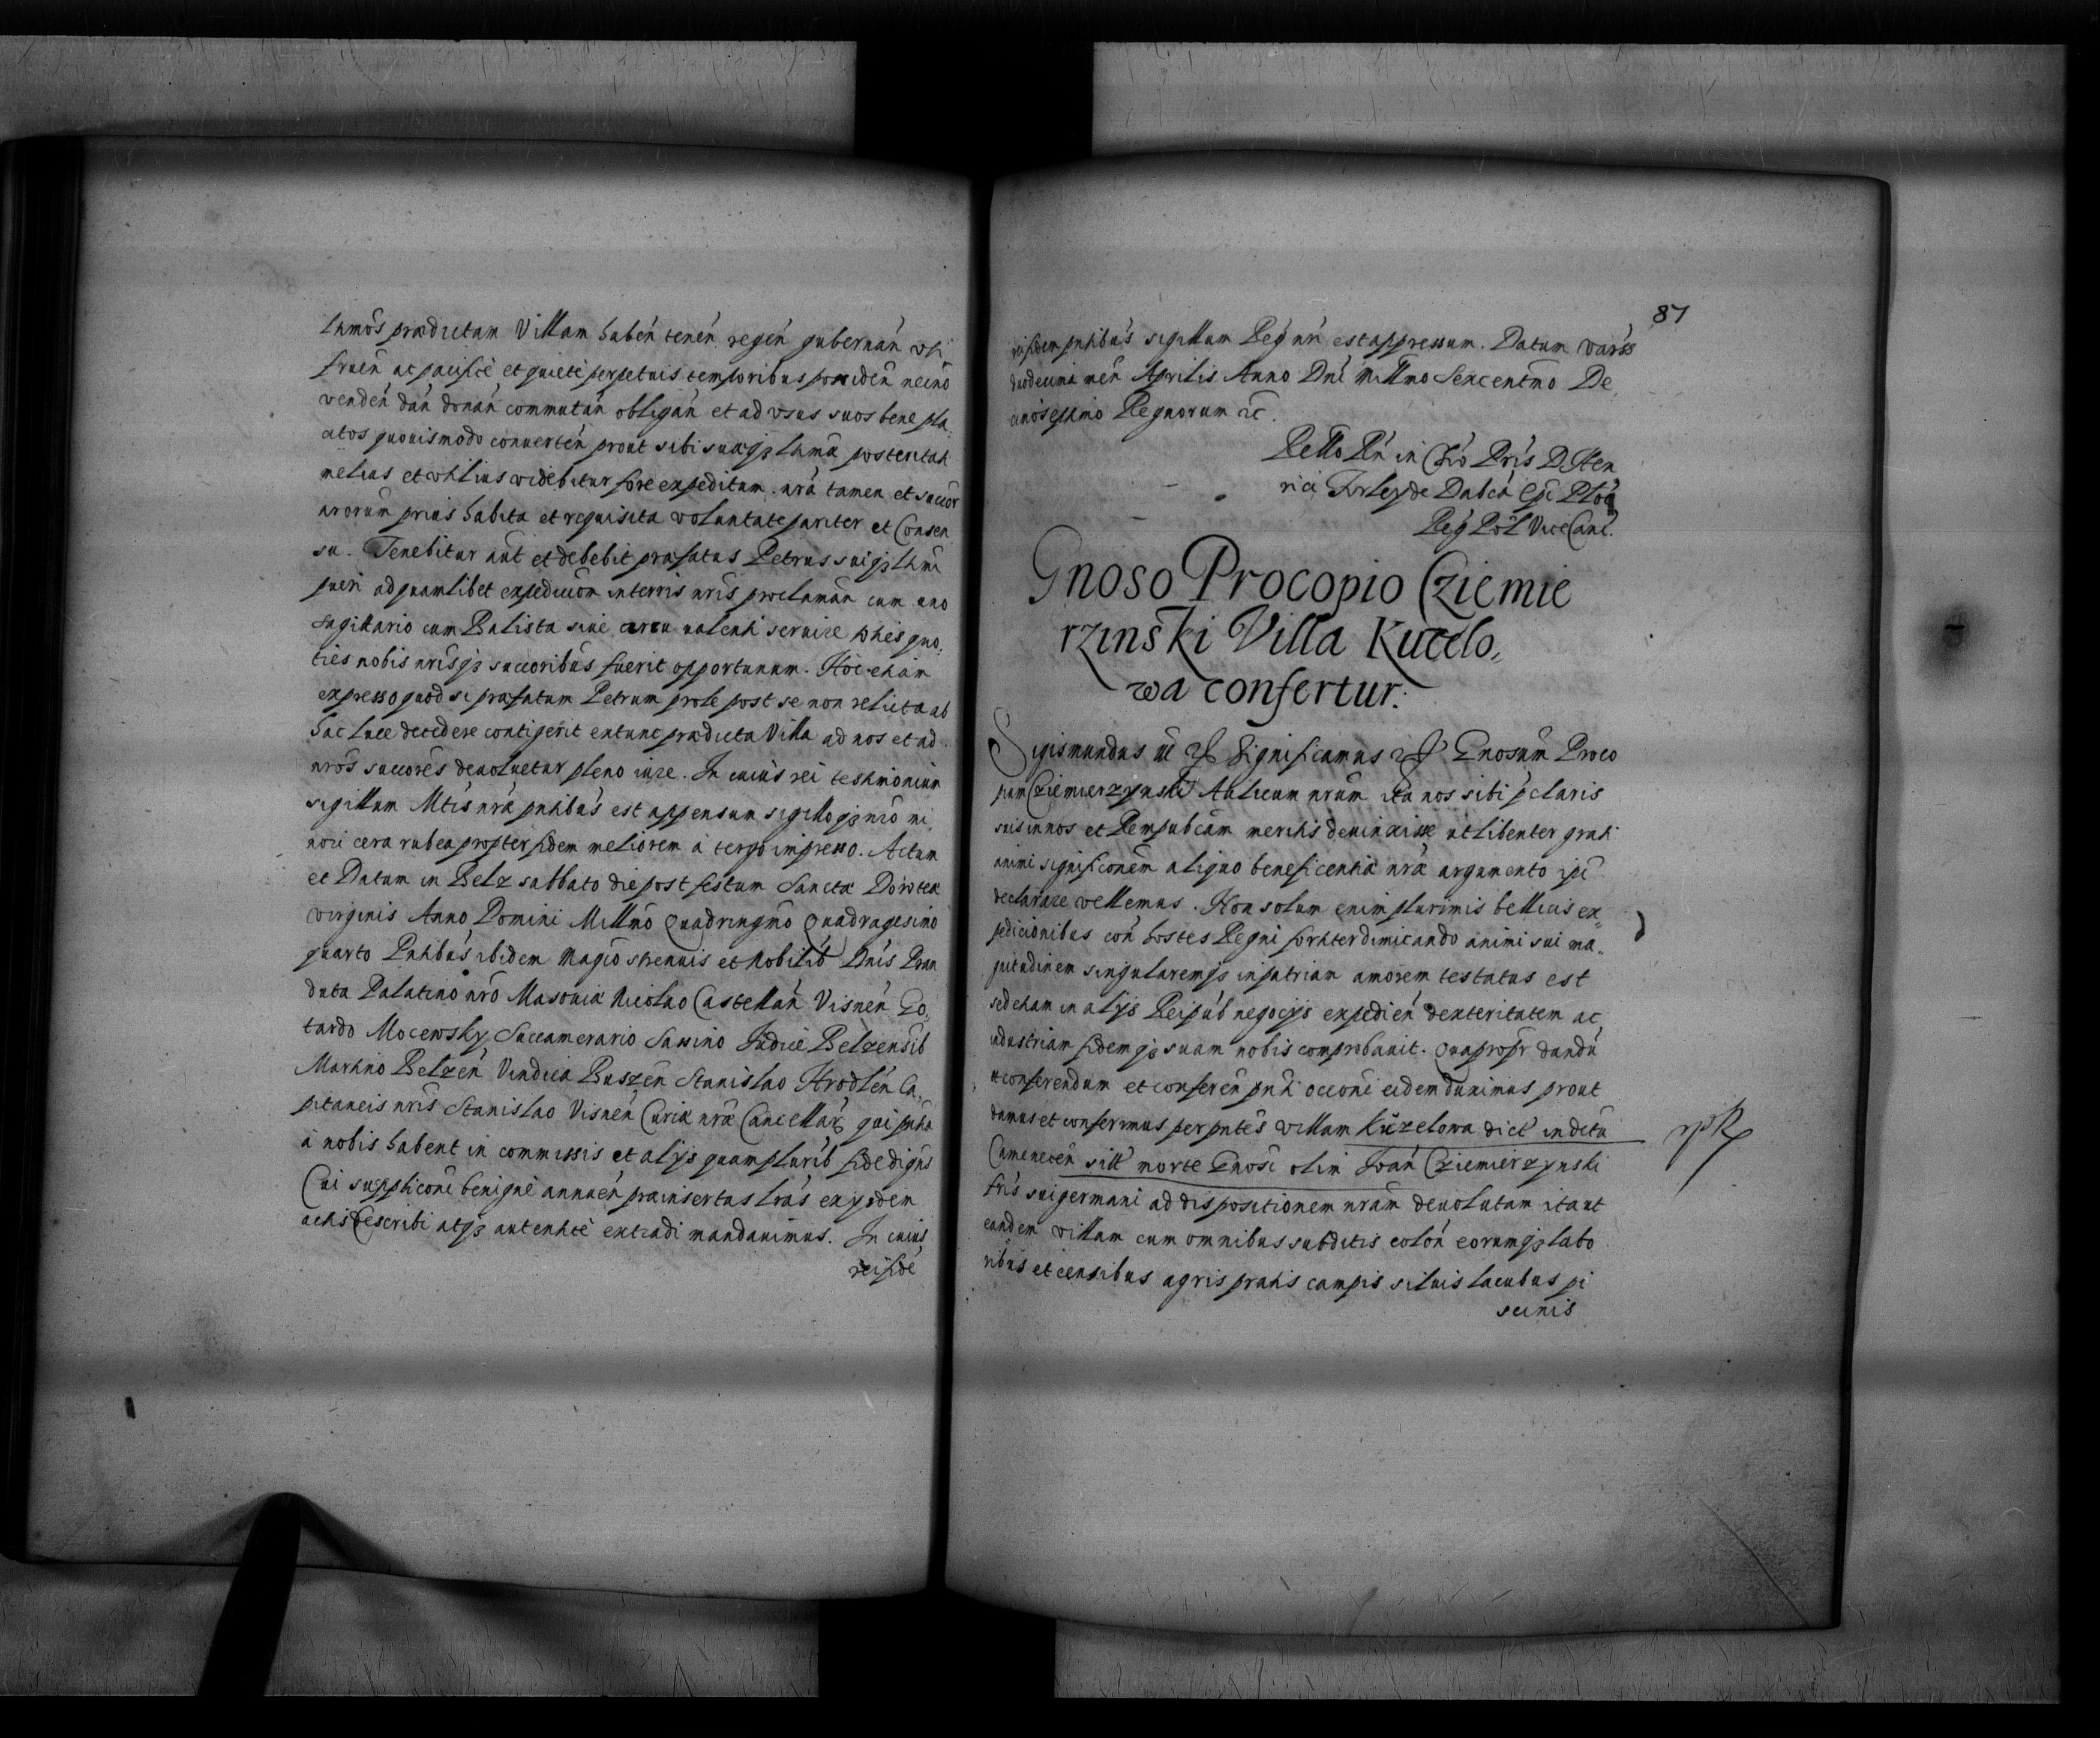 lhmos prædictam Villam haben tenen regen gubernan vti
fruen ac pacificè et quietè perpetuis temporibus possiden necno
venden dan donan commutan obligan et ad vsus suos bene pla
citos quouismodo conuerten prout sibi suæq3 lhmæ posteritati
melius et vtilius videbitur fore expeditum nrâ tamen et succor
nrorum prius habita et requisita voluntate pariter et Consen
su. Tenebitur aut et debebit præfatus Petrus suiq3 lhmi
pueri ad quamlibet expedicion in terris nris proclaman cum uno
sagittario cum Balista siue arcu ualenti seruire toties quo,
ties nobis nrisq3 succoribus fuerit opportunum. Hoc etiam
expresso quod si præfatum Petrum prole post se non relicta ab
hac luce decedere contigerit extunc prædicta Villa ad nos et ad
nros succores deuoluetur pleno iure. In cuius rei testimonium
sigillum Mtis nræ pntibus est appensum sigilloq3 nro mi
nori cera rubea propter fidem meliorem à tergo impresso. Actum
et Datum in Belz sabbato die post festum Sanctæ Doroteæ
virginis Anno Domini Millmo Quadringmo Quadragesimo
quarto Pntibus ibidem Magco strenuis et Nobilib Dnis Pran
dota Palatino nro Masouiæ Nicolao Castellan Visnen Go,
tardo Mocewsky Succamerario Sassino Iudice Belzensib
Martino Belzen Vindica Buszen Stanislao Hrodlen Ca,
pitaneis nris Stanislao Visnen Curiæ nræ Cancellar qui pntia
à nobis habent in commissis et alijs quam plurib fide dignis
Cui suppliconi benignè annuen præinsertas lras ex ijsdem
actis describi atq3 autenticè extradi mandauimus. In cuius
rei fide
87
rei fidem pntibus sigillum Regn nri est appressum. Datum Warss
duodecima men Aprilis Anno Dni Millmo Sexcentmo De
cimo septimo Regnorum etc.
Rello Rn in Chro Pris D. Hen
rici Firley de Dabca Epi Ploc
Reg Pol Vice Canc.
Gnoso Procopio Cziemie
rzinski Villa Kucelo,
wa confertur.
Sigismundus III etc Significamus etc Gnosum Proco
pium Cziemierzynski Aulicum nrum ita nos sibi pclaris
suis in nos et Rempubcam meritis deuinxisse ut libenter grati
animi significonem aliquo beneficentiæ nræ argumento ipi
declarare vellemus. Non solum enim plurimis bellicis ex,
pedicionibus con hostes Regni fortiter dimicando animi sui ma,
gnitudinem singularemq3 in patriam amorem testatus est
sed etiam in alijs Reipub negocijs expedien dexteritatem ac
industriam fidemq3 suam nobis comprobauit. Quapropr dandu
et conferendum et conferen pnti occoni eidem duximus prout
damus et conferimus per pntes villam Kuzelowa dict in dctu
Camenecen sitt morte Gnosi olim Ioan Cziemierzynski
fris sui germani ad dispositionem nram deuolutam ita ut
eandem villam cum omnibus subditis colon eorumq3 labo
ribus et censibus agris pratis campis siluis lacubus pi
scinis